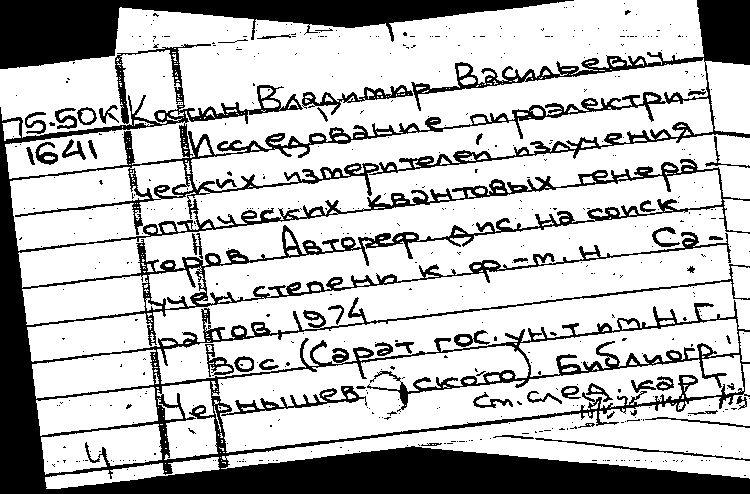 75.50К Костин, Владимир Васильевич.
1641 Исследование пироэлектри-
ческих измерителей излучения
оптических квантовых генера-
торов. Автореф. дис. на соиск.
учен. степени к. ф.-т. н. Са-
ратов, 1974
30с. (Сарат. гос. ун.т им. Н. Г.
Чернышевского). Библиогр.
см. след. карт.
Ч